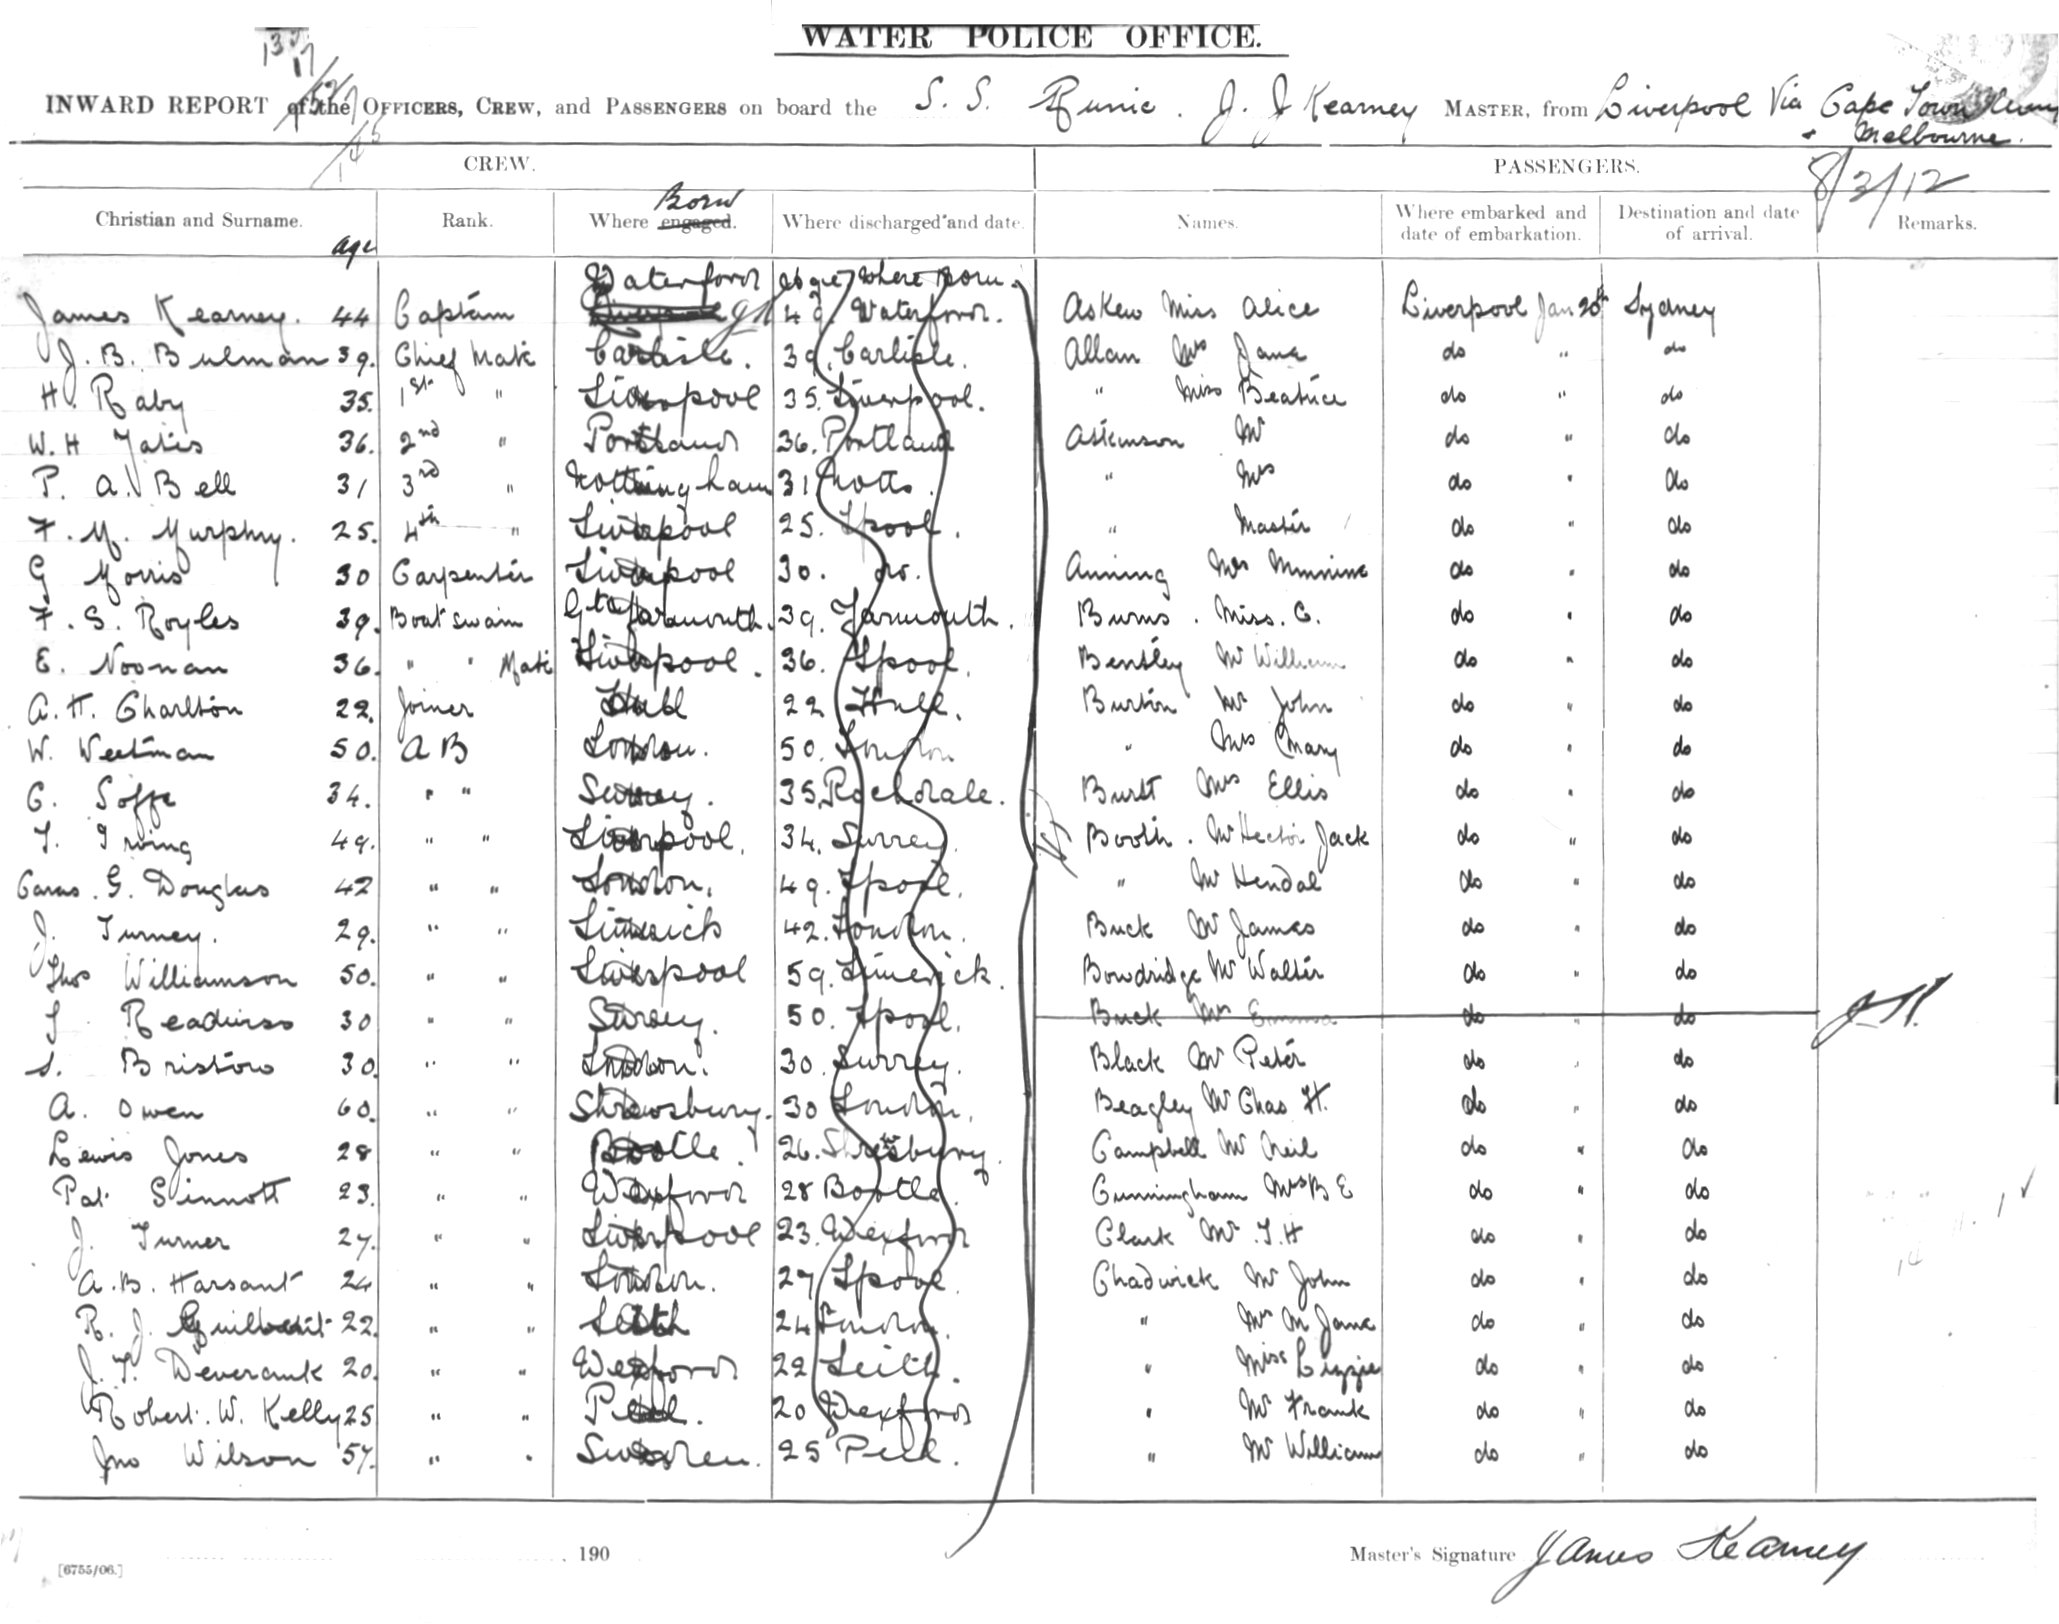 WATER POLICE OFFICE.
INWARD REPORT of the OFFICERS, CREW, and PASSENGERS on board the S. S. Runic. J. J Kearney MASTER, from Liverpool Via Cape Town
& Melbourne.
CREW. PASSENGERS. 8/3/12
Born
Christian and Surname. Rank. Where engaged. Where discharged and date. Names. Where embarked and date of embarkation. Destination and date of arrival. Remarks.
age
Waterford age Where Born.
James Kearney. 44 Captain Liverpool 49. Waterford. Askew Miss Alice Liverpool Jan 20th Sydney
J. B. Bulman 39. Chief Mate Carlisle. 39. Carlisle. Allan Mrs Jane do " do
H. Raby 35. 1st " Liverpool 35. Liverpool. " Miss Beatrice do " do
W. H Yates 36. 2nd " Portland 36. Portland Atkinson Mr do " do
P. A. Bell 31 3rd " Nottingham 31 Notts. " Mrs do " do
F. M. Murphy. 25. 4th " Liverpool 25. Lpool. " Master do " do
G Morris 30 Carpenter Liverpool 30. do. Anning Mrs Minnine do " do
F. S. Royles 39. Boatswain Gt Yarmouth. 39. Yarmouth. Burns. Miss. C. do " do
E. Noonan 36. " " Mate Liverpool. 36. Lpool. Bentley Mr William do " do
A. H. Charlton 22. Joiner Hull 22 Hull. Burton Mr John do " do
W. Weetman 50. A B London. 50. London " Mrs Mary do " do
C. Soffe 34. " " Surrey. 35. Rochdale. Burst Mrs Ellis do " do
T. Irving 49. " " Liverpool. 34. Surrey. Booth. Mr Hector Jack do " do
G. Douglas 42 " " London. 49. Lpool. " Mr Hendal do " do
J. Turney. 29. " " Limerick 42. London. Buck Mr James do " do
Thos Williamson 50. " " Liverpool 59. Limerick. Bowdridge Mr Walter do " do
T Readings 30 " " Surrey. 50. Lpool. Buck Mrs Emma do " do
S. Bristow 30. " " London. 30. Surrey. Black Mr Peter do " do
A. Owen 60. " " Shrewsbury. 30 London. Beagley Mr Chas H. do " do
Lewis Jones 28 " " Bootle. 26. Shrewsbury. Campbell Mr Neil do " do
Pat Sinnott 23. " " Wexford 28 Bootle. Cunningham Mrs B E do " do
J. Turner 27. " " Liverpool 23. Wexford Clark Mr. T. H do " do
A. B. Harsant 24 " " London. 27 Lpool. Chadwick Mr John do " do
R. J. Guilbert 22. " " Leith 24 London. " Mrs M Jane do " do
J. T. Deverauk 20. " " Wexford 22 Leith. " Miss Lizzie do " do
Robert. W. Kelly 25 " " Peel. 20 Wexford " Mr Frank do " do
Jno Wilson 57. " " Sweden. 25 Peel. " Mr William do " do
190 Master's Signature James Kearney
[6755/06.]